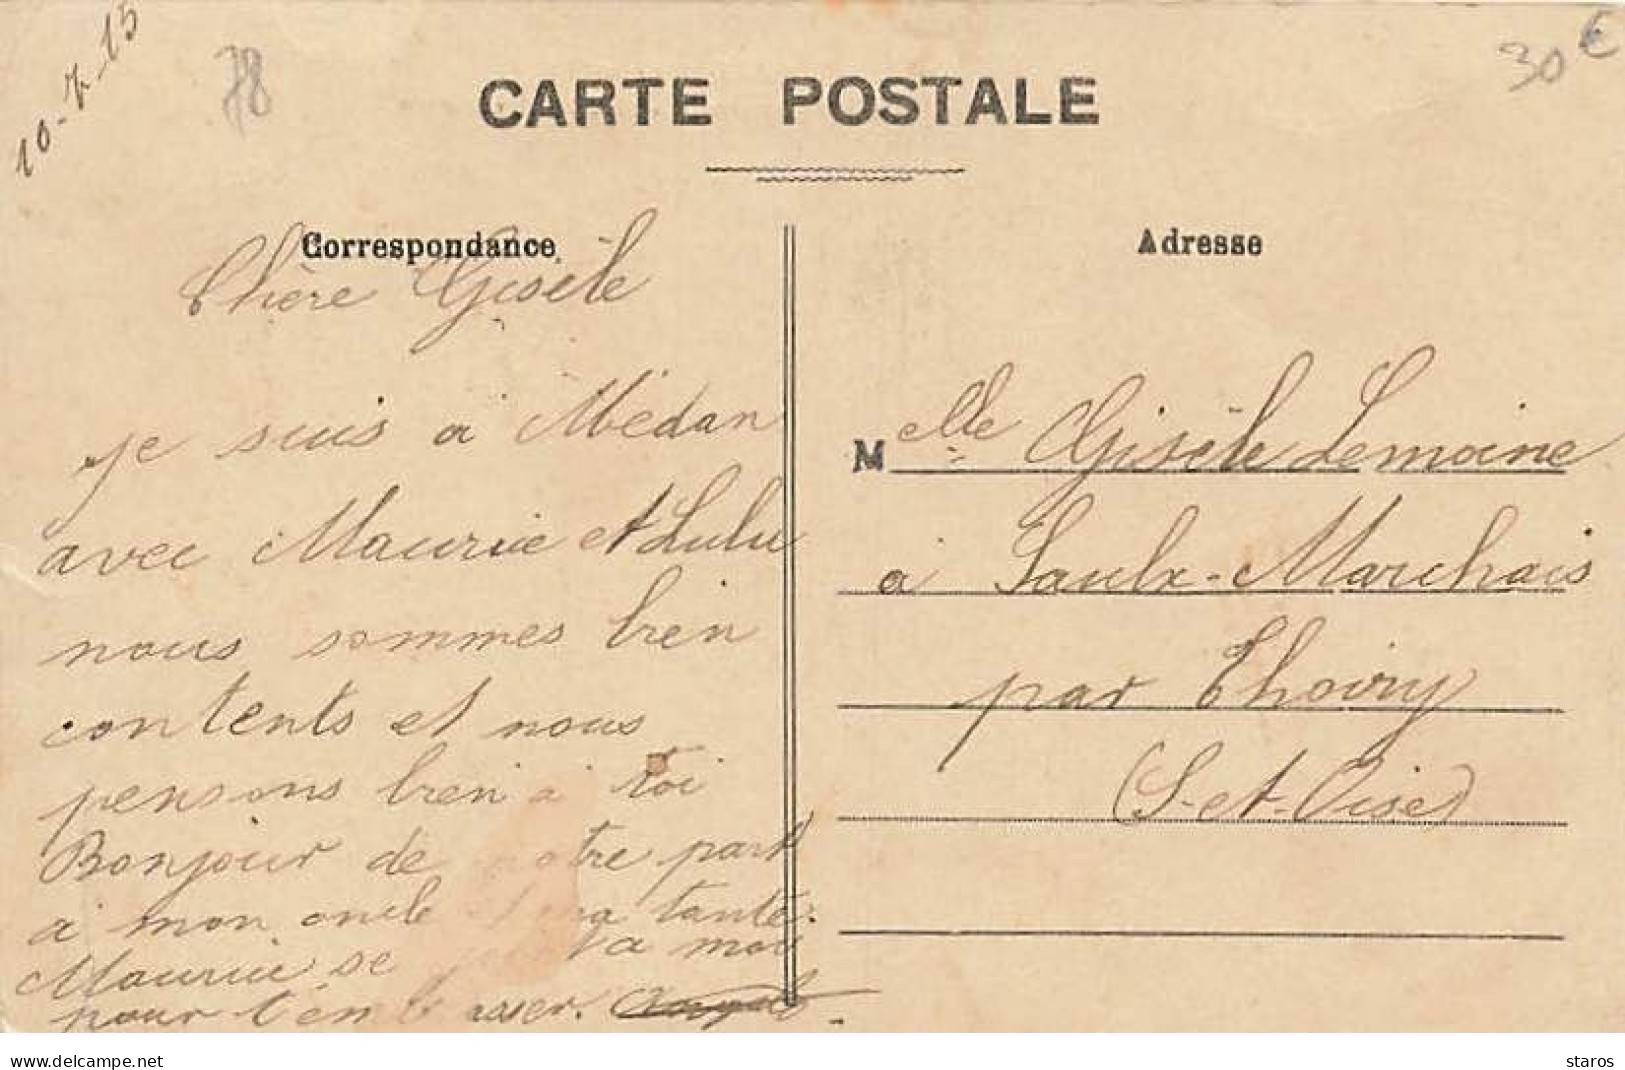 10-7-15
78
30 €
CARTE POSTALE
Correspondance
Adresse
Chère Gisèle
je suis à Médan
avec Maurice et Lulu
nous sommes bien
contents et nous
pensons bien à toi
Bonjour de notre part
à mon oncle ma tante.
Maurice se à moi
pour t'embrasser.
Melle Gisèle Lemoine
à Saulx-Marchais
par Thoiry
(S-et-Oise)
www.delcampe.net
staros